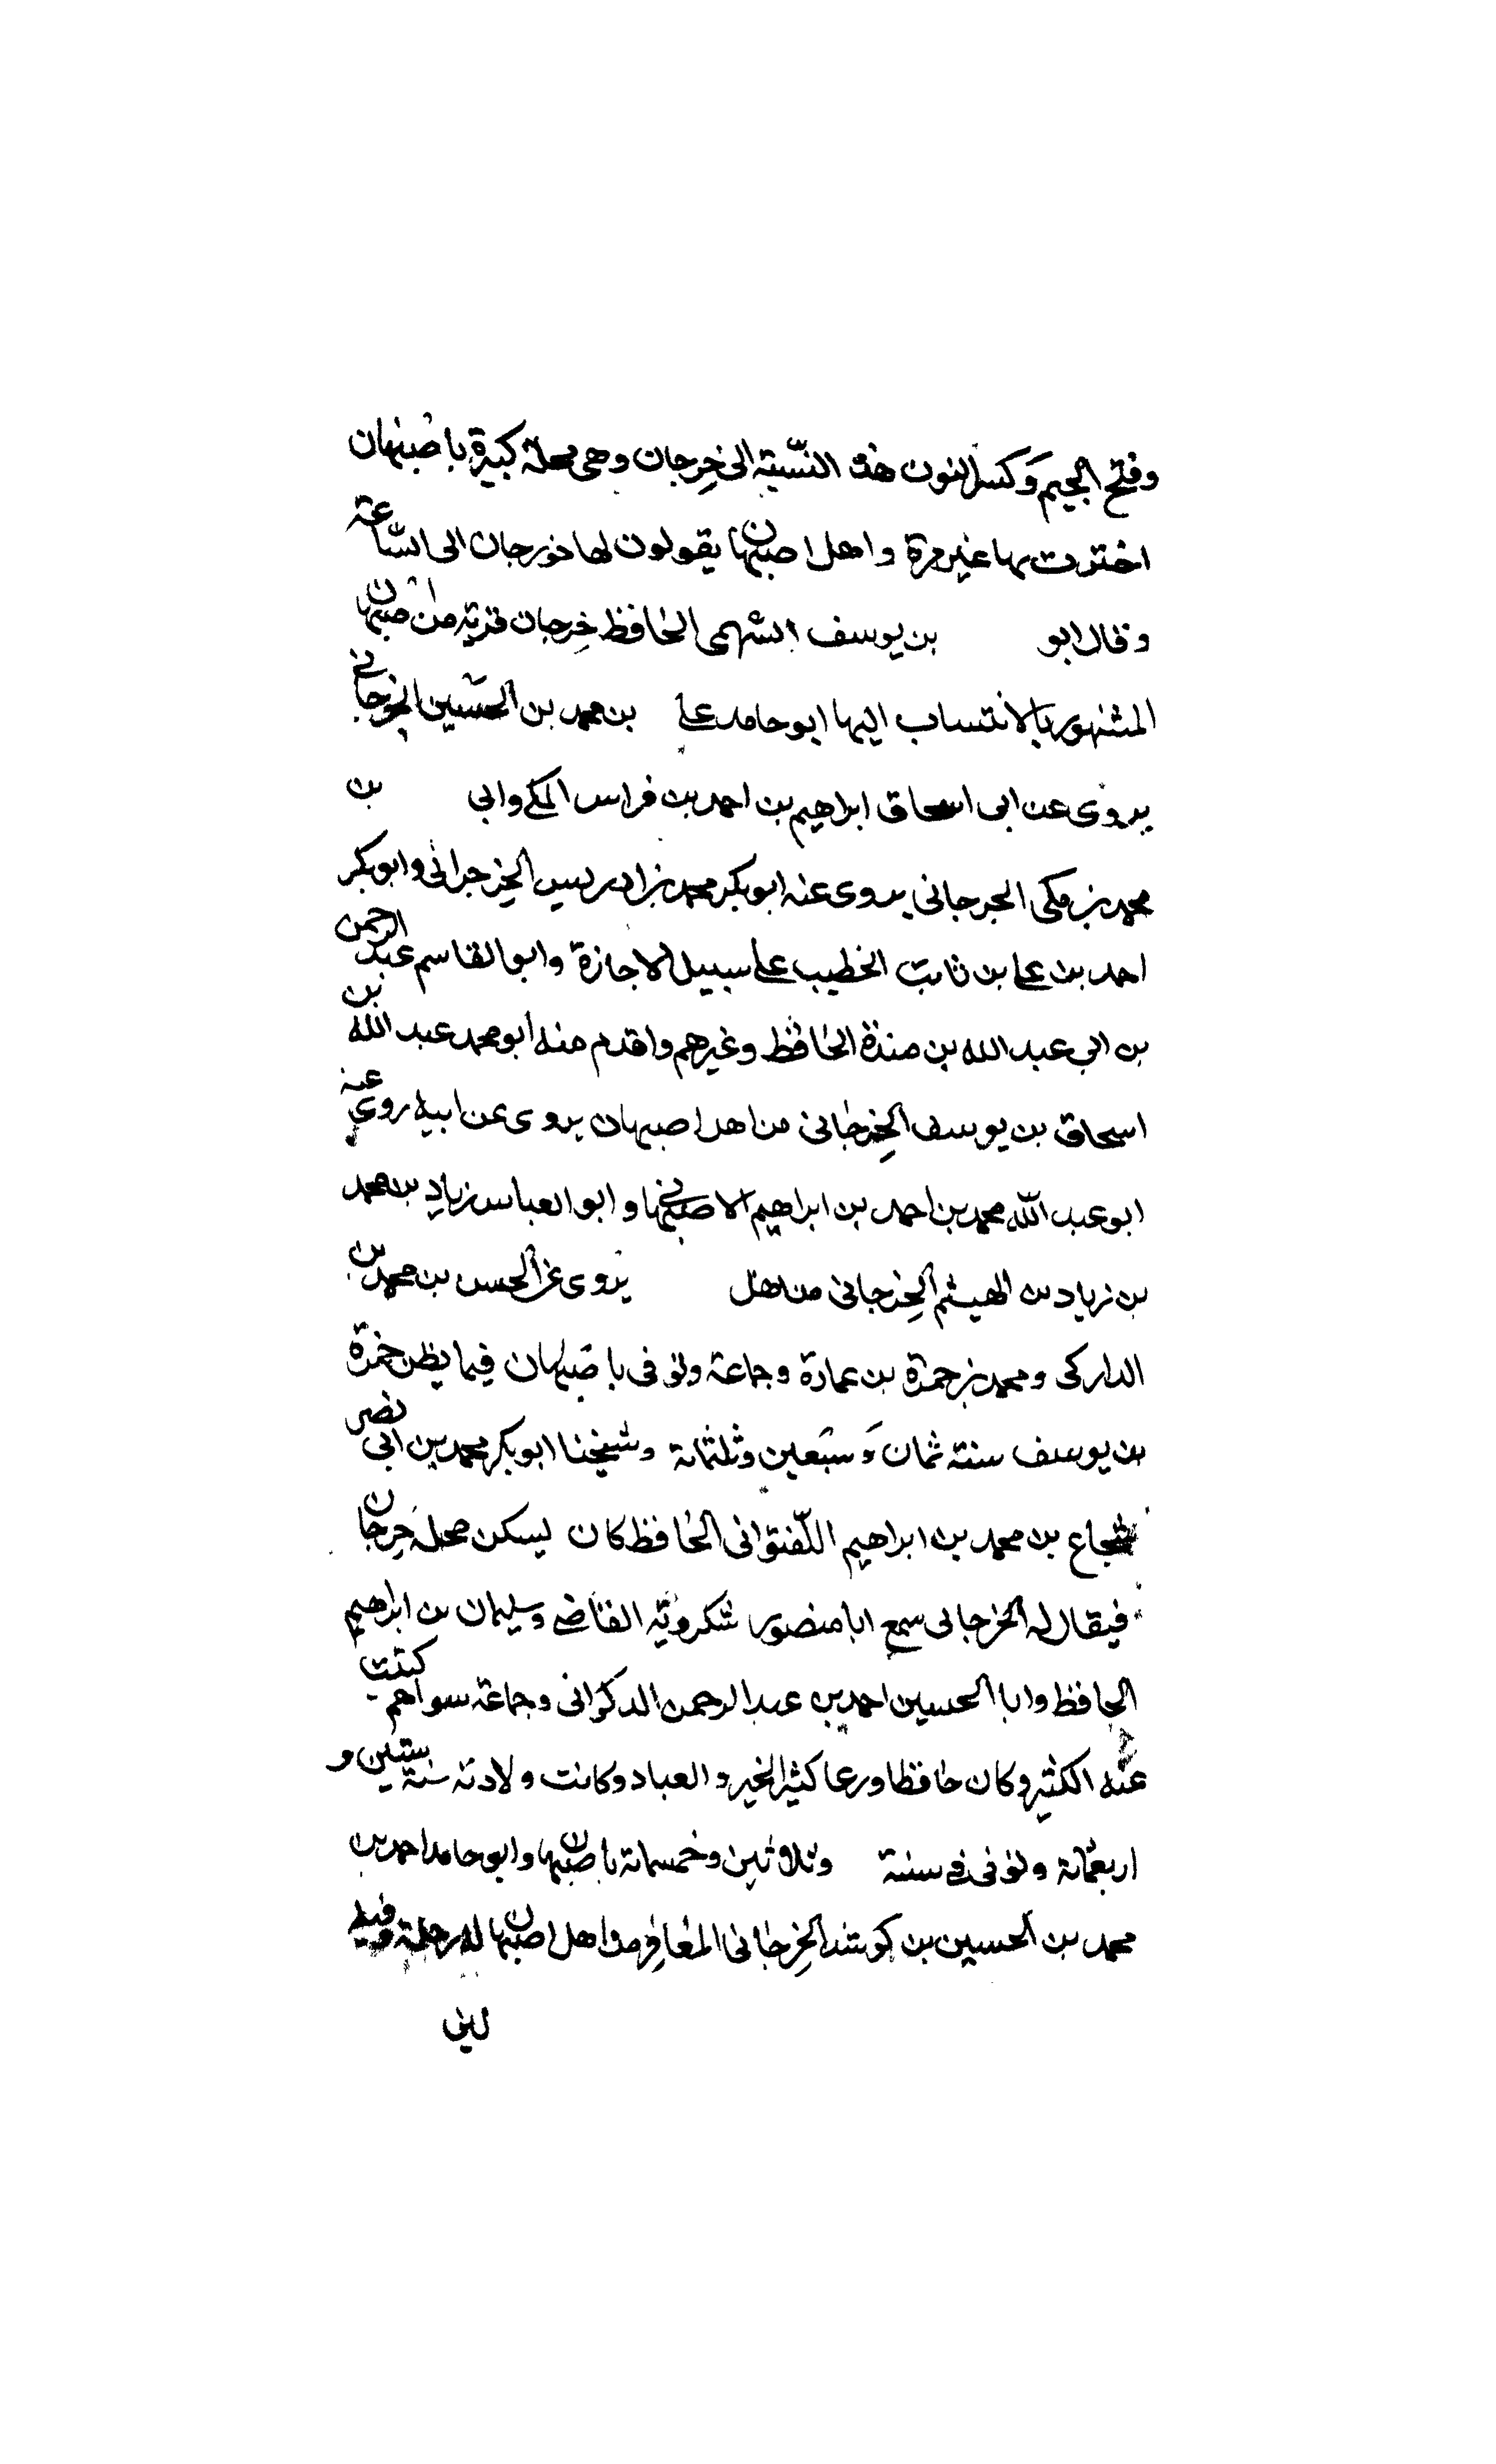 وفتح الجيم وكسر النون هذه النسبة الى خرجان وهى محلة كبيرة باصبهان
اختزت بها غير مرة واهل اصبهان يقولون لها خورجان الى الساعة
وقال ابو بن يوسف السهمى الحافظ خرجان قرية من اصبهان
المشهور بالانتساب اليها ابو حامد على بن محمد بن الحسين الخرجانى
يروى عن ابى اسحاق ابراهيم بن احمد بن فراس المكى وابى بن
محمد بن مكى الجرجانى يروى عنه ابو بكر محمد بن ادريس الخرجرائى وابو بكر
احمد بن على بن ثابت الخطيب على سبيل الاجازة وابو القاسم عبد الرحمن
بن ابى عبد الله بن مندة الحافظ وغيرهم واقدم منه ابو محمد عبد الله بن
اسحاق بن يوسف الخرجانى من اهل اصبهان يروى عن ابيه روى عنه
ابو عبد الله محمد بن احمد بن ابراهيم الاصبهانى وابو العباس زياد بن محمد
بن زياد بن الهيثم الخرجانى من اهل يروى عن الحسن بن محمد بن
الداركى ومحمد بن حمزة بن عمارة وجماعة وتوفى باصبهان فيما يظن حمزة
بن يوسف سنة ثمان وسبعين وثلثمائة وشيخنا ابو بكر محمد بن ابى نصر
شجاع بن محمد بن ابراهيم اللفتوانى الحافظ كان يسكن محلة خرجان
فيقال له الخرجانى سمع ابا منصور شكرويه القاضى وسليمان بن ابراهيم
الحافظ وابا الحسين احمد بن عبد الرحمن الذكوانى وجماعة سواهم كتبت
عنه الكثير وكان حافظا ورعا كثير الخير و العباد وكانت ولادته سنة ستين و
اربعمائة وتوفى فى سنة وثلاثين وخمسمائة باصبهان وابو حامد احمد بن
محمد بن الحسين بن كوشيد الخرجانى من اهل اصبهان له رحلة